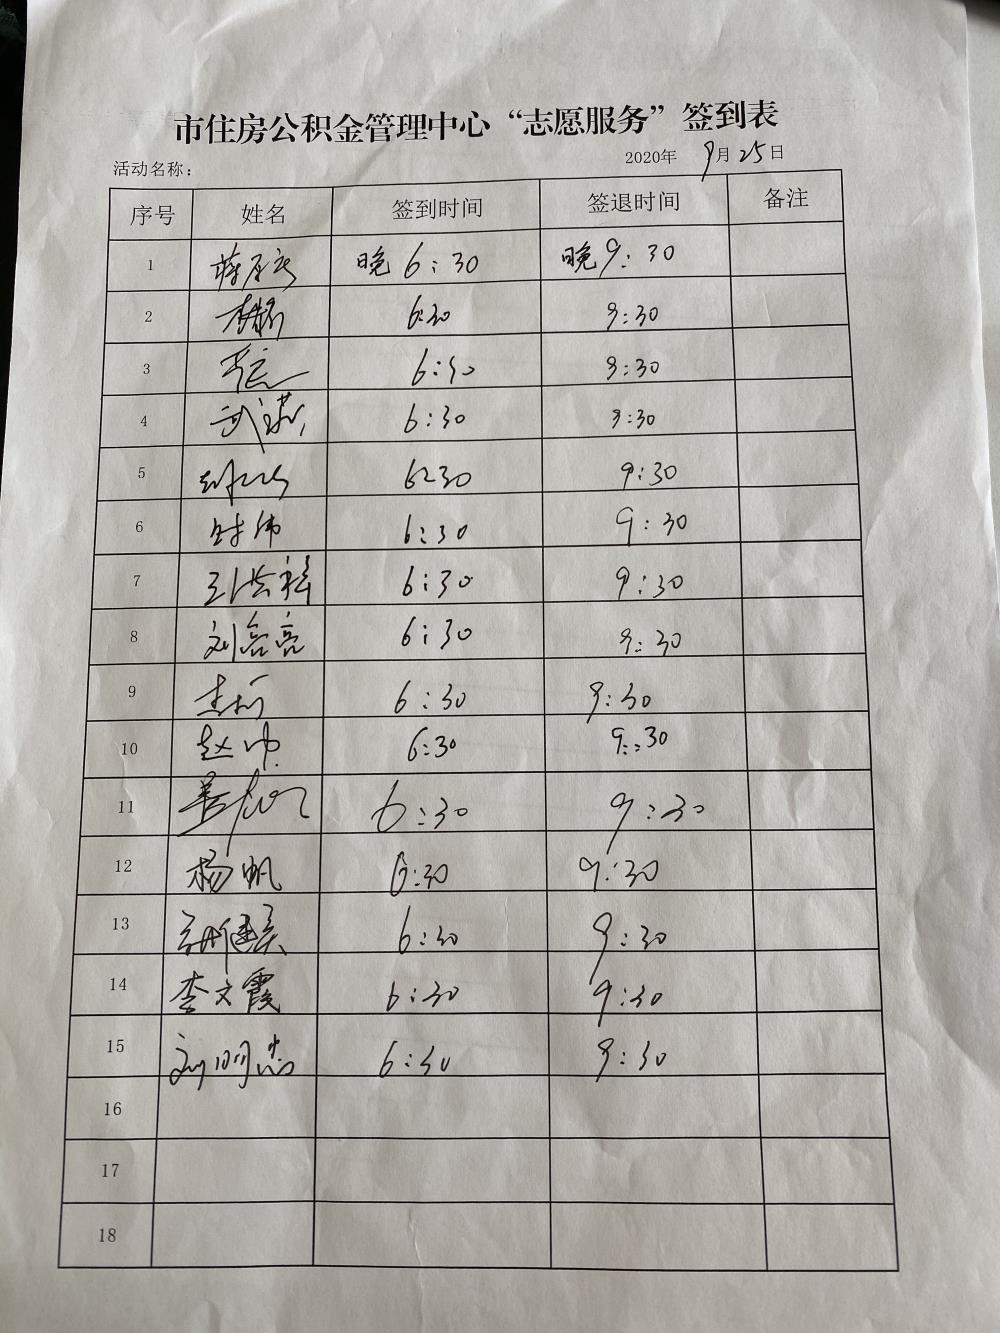 市住房公积金管理中心“志愿服务”签到表
活动名称： 2020年 9月25日
序号 姓名 签到时间 签退时间 备注
1 晚6:30 晚9:30
2 6:30 9:30
3 6:30 9:30
4 武 6:30 9:30
5 6:30 9:30
6 时伟 6:30 9:30
7 王洪禄 6:30 9:30
8 刘亮亮 6:30 9:30
9 6:30 9:30
10 赵帅 6:30 9:30
11 6:30 9:30
12 杨帆 6:30 9:30
13 6:30 9:30
14 李文霞 6:30 9:30
15 刘明忠 6:30 9:30
16
17
18